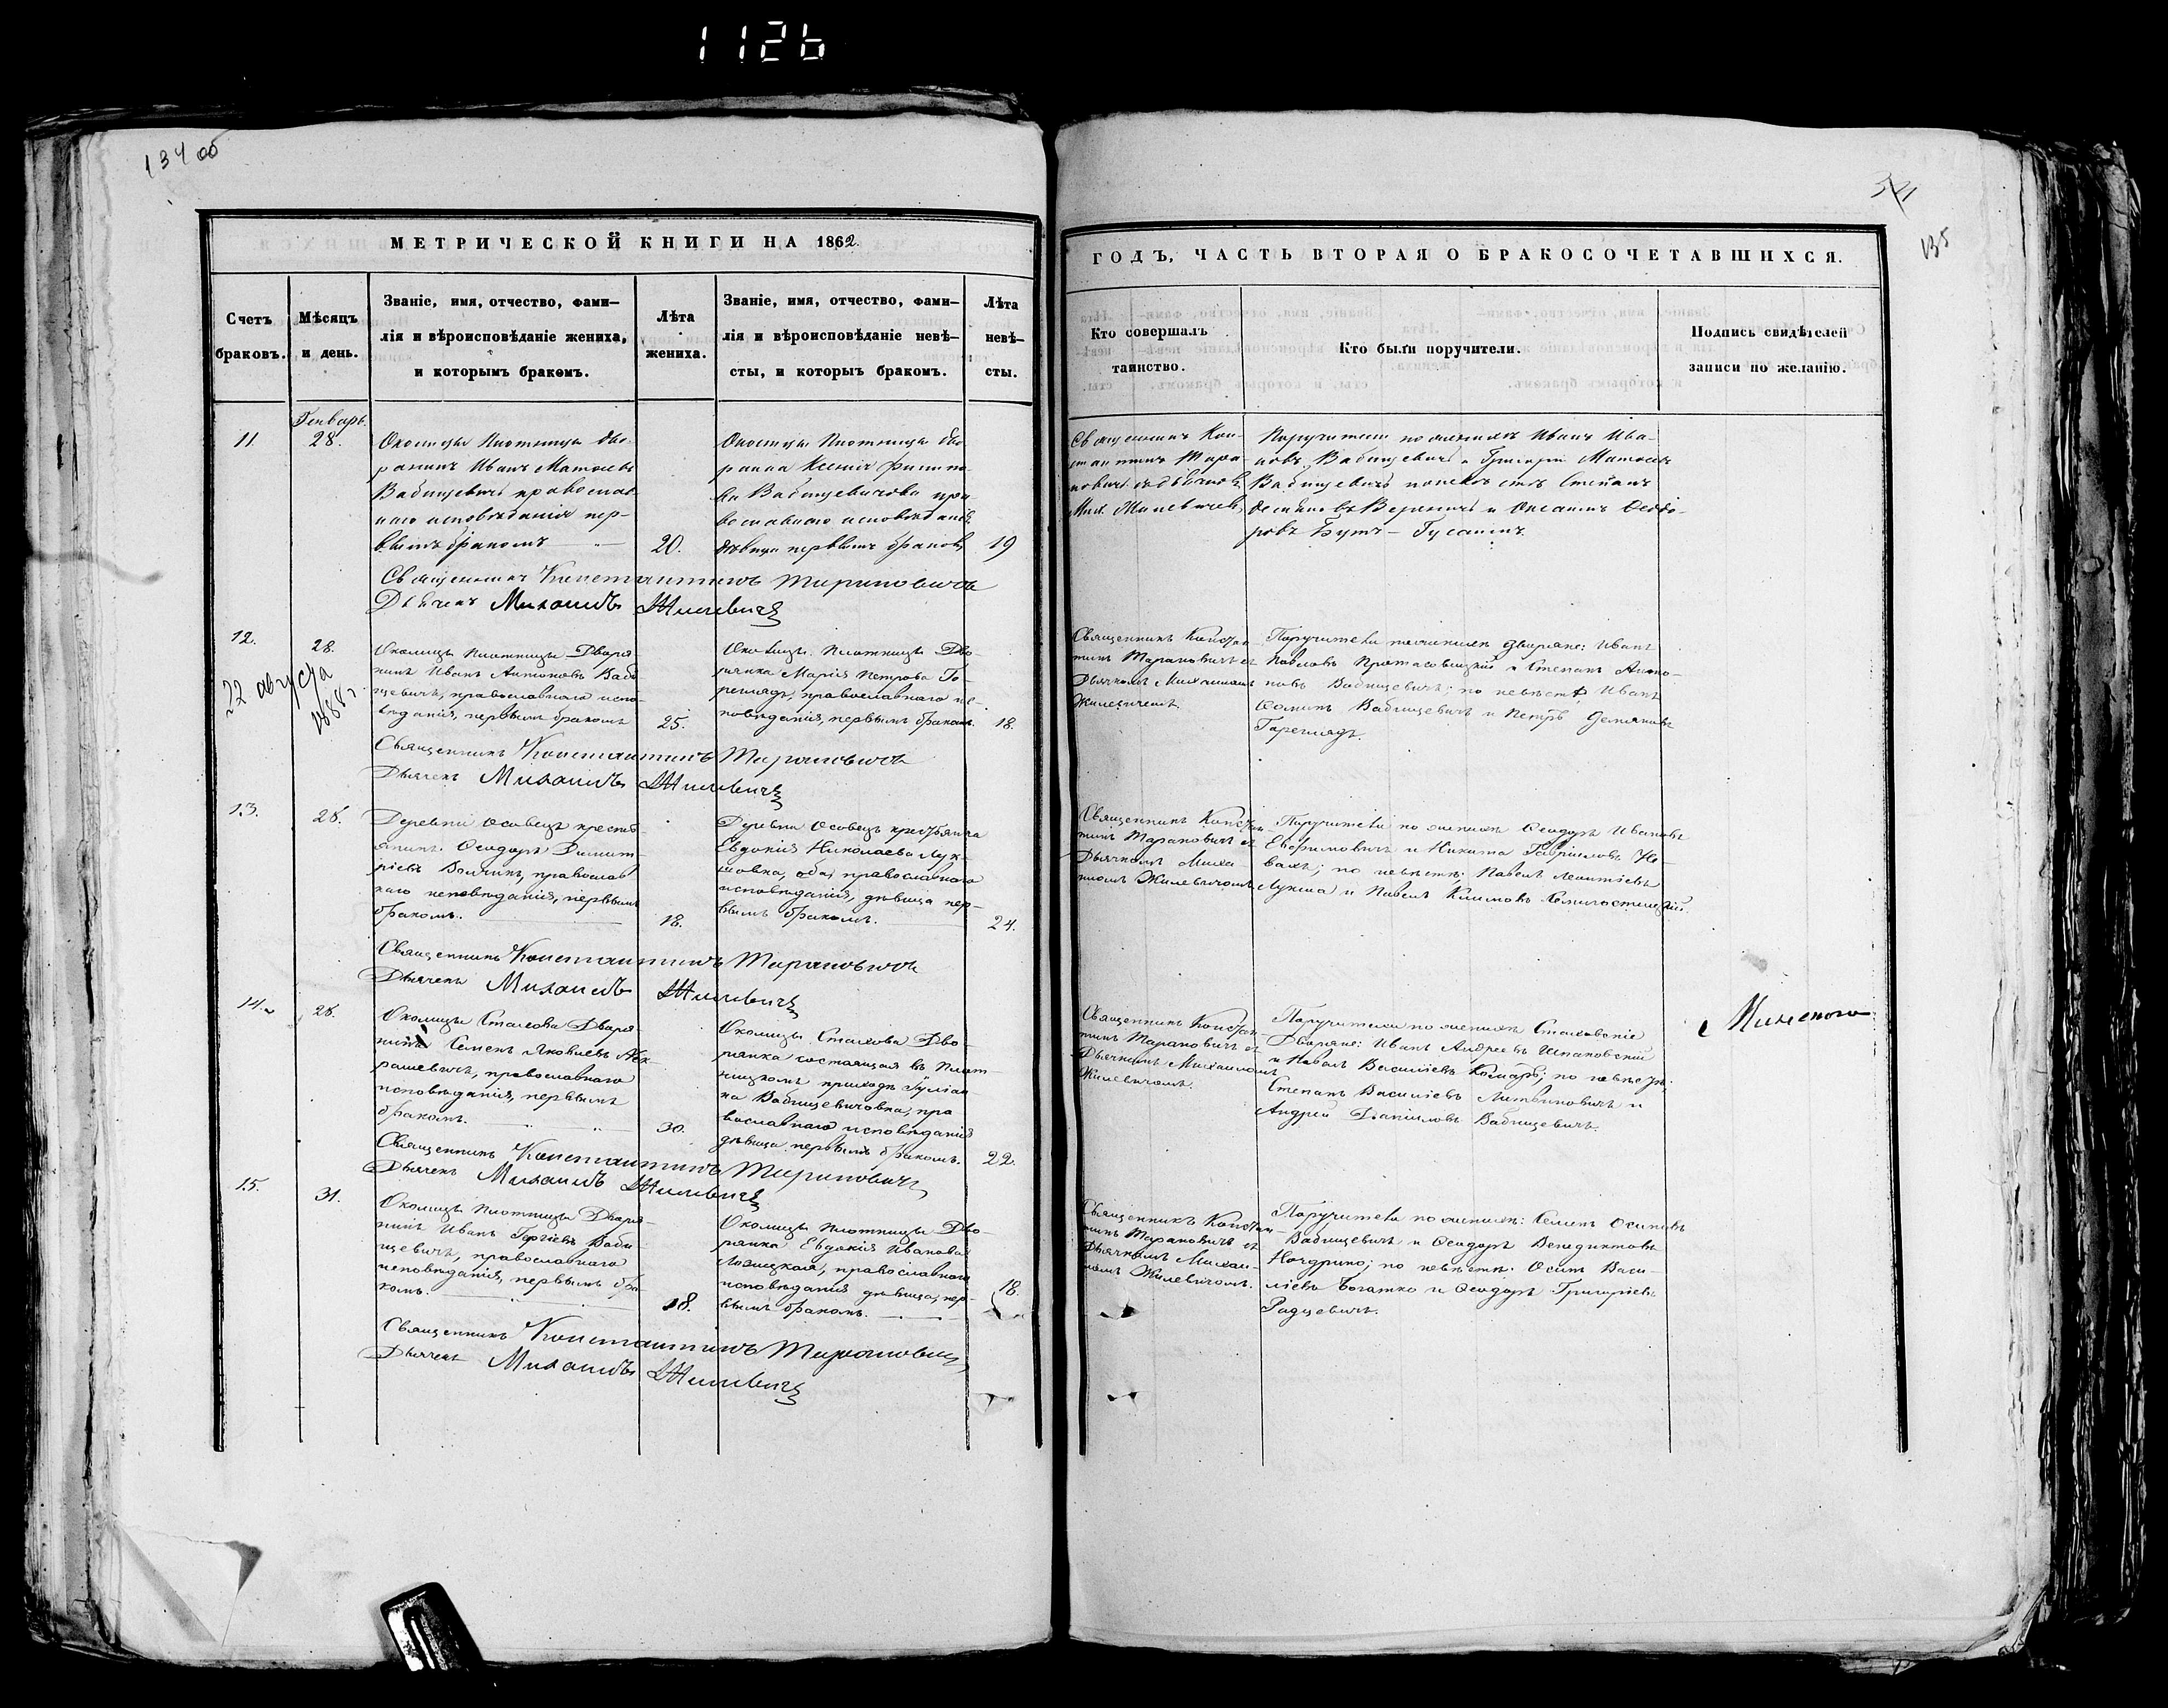 1126
134 об
135
МЕТРИЧЕСКОЙ КНИГИ НА 1862.
Счетъ браковъ.
Мѣсяцъ и день.
Званіе, имя, отчество, фами–
лія и вѣроисповѣданіе жениха,
и которымъ бракомъ.
Лѣта жениха.
Званіе, имя, отчество, фами–
лія и вѣроисповѣданіе невѣ–
сты, и которыъ бракомъ.
Лѣта невѣ–
сты.
Генварь
11.
28.
Околицы Плотницы дво-
ранинъ Иванъ Матѳіевъ
Бабицевичъ православ-
наго исповѣданія пер-
вымъ бракомъ
20.
Околицы Плотницы дво
ранка Ксенія Филипо-
ва Бабицевичова пра
вославнаго исповѣданія
дѣвица первымъ бракомъ
19
Священникъ Константинъ Тарановичъ
Дьячекъ Михаилъ Жилевичъ
12.
28.
22 августа
1888 г.
Околицы Плотницы Дворя
нинъ Иванъ Антоновъ Баби
цевичъ, православнаго испо-
вѣданія, первымъ бракомъ
25.
Околицы Плотницы Дво-
рянка Марія Петрова Го-
реглядъ, православнаго ис-
повѣданія, первымъ бракомъ.
18.
Священникъ Константинъ Тарановичъ
Дьячекъ Михаилъ Жилевичъ
13.
28.
Деревни Осовецъ кресть-
янинъ Ѳеодоръ Димит-
ріевъ православ
наго исповѣданія, первымъ
бракомъ.
18.
Деревни Осовецъ крестьянка
Евдокія Николаева Лук-
шовна, оба православнаго
исповѣданія, дѣвица пер-
вымъ бракомъ.
24.
Священникъ Константинъ Тарановичъ
Дьячекъ Михаилъ Жилевичъ
14.
28.
Околицы Стахова Дворя-
нинъ Семенъ Яковлевъ
православнаго
исповѣданія, первымъ
бракомъ.
30.
Околицы Стахова Дво-
рянка состоящая въ Плот-
ницкомъ приходѣ Іуліан
на Бабицевичовна, пра
вославнаго исповѣданія
дѣвица первымъ бракомъ.
22.
Священникъ Константинъ Тарановичъ
Дьячекъ Михаилъ Жилевичъ
15.
31.
Околицы Плотницы Дворя-
нинъ Иванъ Баби-
цевичъ, православнаго
исповѣданія, первымъ бра-
комъ.
18.
Околицы Плотницы Дво-
рянка Евдокія Иванова
Лозицкая, православнаго
исповѣданія дѣвица, пер-
вымъ бракомъ.
18.
Священникъ Константинъ Тарановичъ
Дьячекъ Михаилъ Жилевичъ
ГОДЪ, ЧАСТЬ ВТОРАЯ О БРАКОСОЧЕТАВШИХСЯ.
Кто совершалъ
таинство.
Кто были поручители.
Подпись свидѣтелей
записи по желанію.
Священникъ Кон-
стантинъ Тара-
новичъ съ дьячкомъ
Мих. Жилевичемъ
Поручители по женихѣ Иванъ Ива-
новъ Бабицевичъ и Григорій Матѳіевъ
Бабицевичъ по невѣстѣ Степанъ
и Ѳеодо-
ровъ Бутъ – Гусаимъ.
Священникъ Констан
тинъ Тарановичъ съ
Дьячкомъ Михаиломъ
Жилевичемъ.
Поручители по женихѣ дворяне: Иванъ
Павловъ Протасовицкій и Степанъ Анто-
новъ Бабицевичъ; по невѣстѣ Иванъ
Ѳоминъ Бабицевичъ и Петръ Демяновъ
Гореглядъ.
Священникъ Констан
тинъ Тарановичъ съ
Дьячкомъ Миха-
иломъ Жилевичомъ
Поручители по женихѣ Ѳеодоръ Ивановъ
Евфимовичъ и Никита Гавріиловъ Но-
вакъ; по невѣстѣ; Павелъ Леонтіевъ
Лукша и Павелъ Климовъ
Священникъ Констан-
тинъ Тарановичъ съ
Дьячкомъ Михаиломъ
Жилевичомъ.
Поручители по женихѣ Стаховскіе
Дворяне: Иванъ Андреевъ Шпаковскій
и Павелъ Василіевъ Комаръ; по невѣстѣ
Степанъ Василіевъ Литвиновичъ и
Андрей Даніиловъ Бабицевичъ.
Минскаго
Священникъ Констан
тинъ Тарановичъ съ
Дьячкомъ Михаи-
ломъ Жилевичомъ.
Поручители по женихѣ: Семенъ Осиповъ
Бабицевичъ и Ѳеодоръ Венедиктовъ
по невѣстѣ: Осипъ Васи-
ліевъ Богатко и Ѳеодоръ Григоріевъ
Радцевичъ.